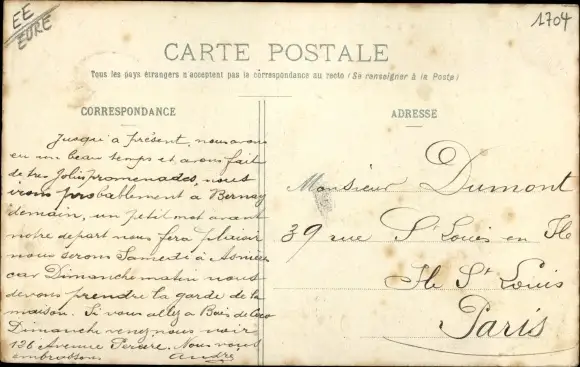 EE
EURE
1704
CARTE POSTALE
Tous les pays étrangers n'acceptent pas la correspondance au recto (Se renseigner à la Poste)
CORRESPONDANCE
ADRESSE
Jusqu'à présent, nous avons
eu un beau temps et avons fait
de très jolies promenades, nous
irons probablement à Bernay
demain, un petit mot avant
notre depart nous fera plaisir
nous serons Samedi à Asnières
car Dimanche matin nous
devons prendre la garde de la
maison. Si vous allez à Bois de
Dimanche venez nous voir
136 Avenue Pereire. Nous vous
embrassons. André
Monsieur Dumont
39 rue St Louis en Ile
Ile St Louis
Paris